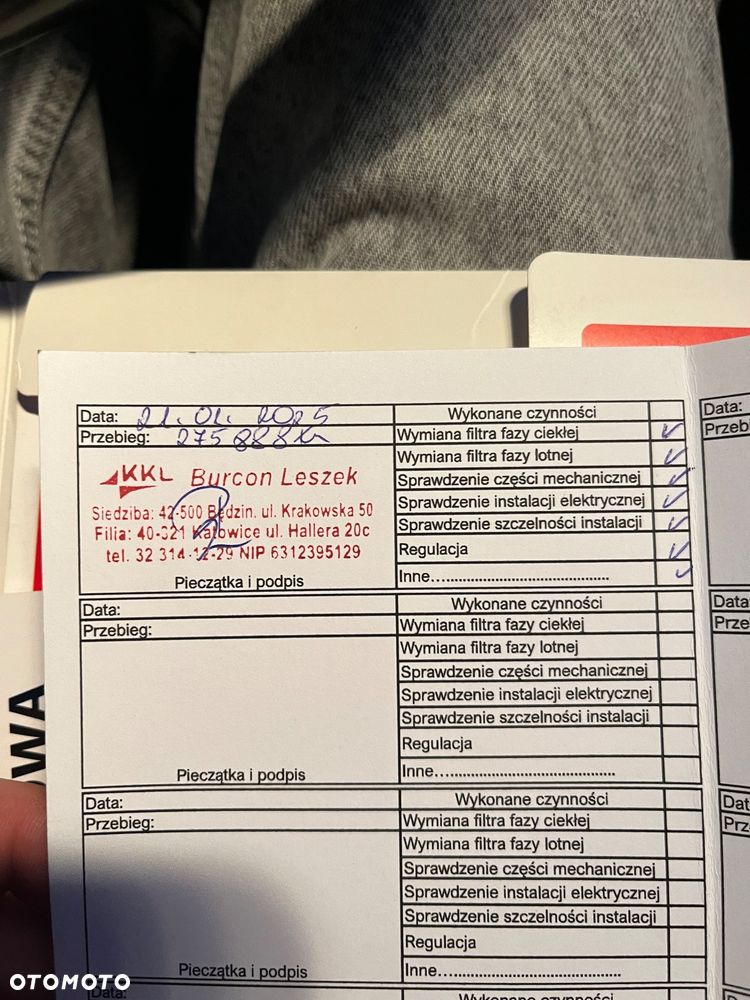 Data: 21.01.2025 Wykonane czynności
Przebieg: 275 888 km Wymiana filtra fazy ciekłej
Wymiana filtra fazy lotnej
KKL Burcon Leszek
Sprawdzenie części mechanicznej
Siedziba: 42-500 Będzin. ul. Krakowska 50
Sprawdzenie instalacji elektrycznej
Filia: 40-321 Katowice ul. Hallera 20c
Sprawdzenie szczelności instalacji
tel. 32 314-12-29 NIP 6312395129
Regulacja
Pieczątka i podpis Inne...........................................
Data: Wykonane czynności
Przebieg: Wymiana filtra fazy ciekłej
Wymiana filtra fazy lotnej
Sprawdzenie części mechanicznej
Sprawdzenie instalacji elektrycznej
Sprawdzenie szczelności instalacji
Regulacja
Pieczątka i podpis Inne...........................................
Data: Wykonane czynności
Przebieg: Wymiana filtra fazy ciekłej
Wymiana filtra fazy lotnej
Sprawdzenie części mechanicznej
Sprawdzenie instalacji elektrycznej
Sprawdzenie szczelności instalacji
Regulacja
Pieczątka i podpis Inne...........................................
Data: Wykonane czynności
Data:
Przebi
Data
Prze
Dat
Prz
WA
OTOMOTO